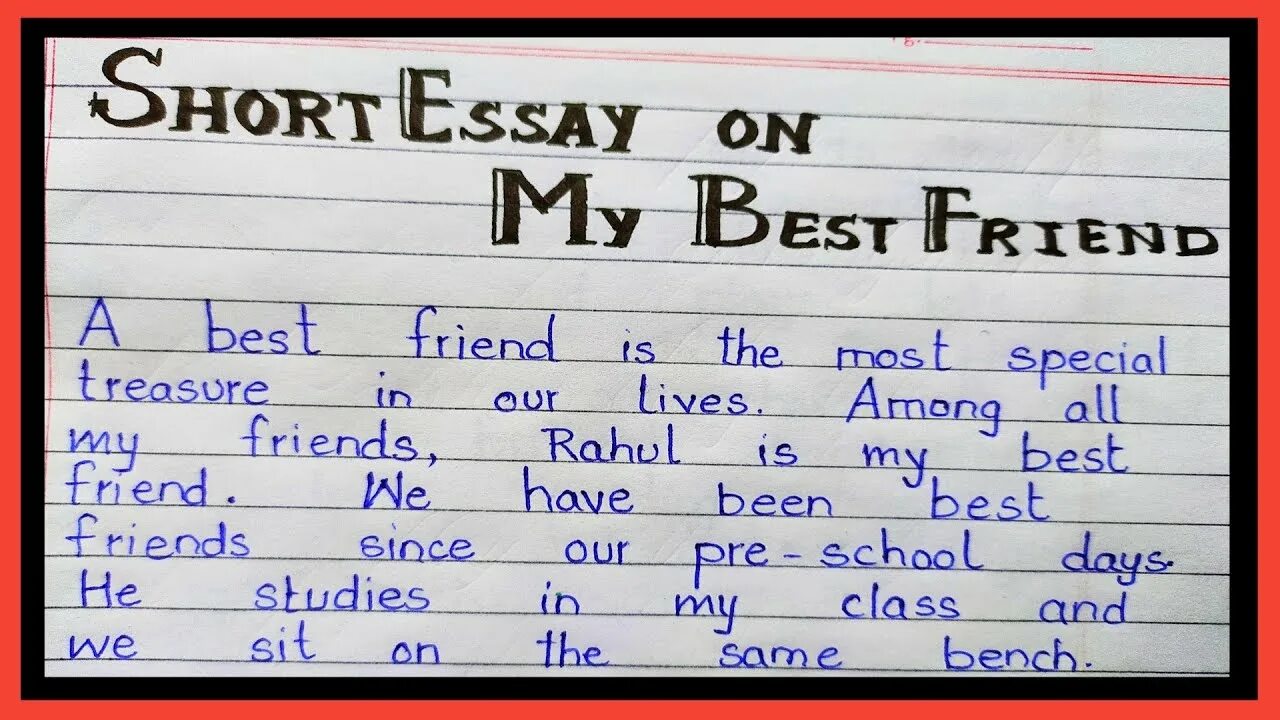 SHORT ESSAY ON
MY BEST FRIEND
A best friend is the most special
treasure in our lives. Among all
my friends, Rahul is my best
friend. We have been best
friends since our pre-school days.
He studies in my class and
we sit on the same bench.